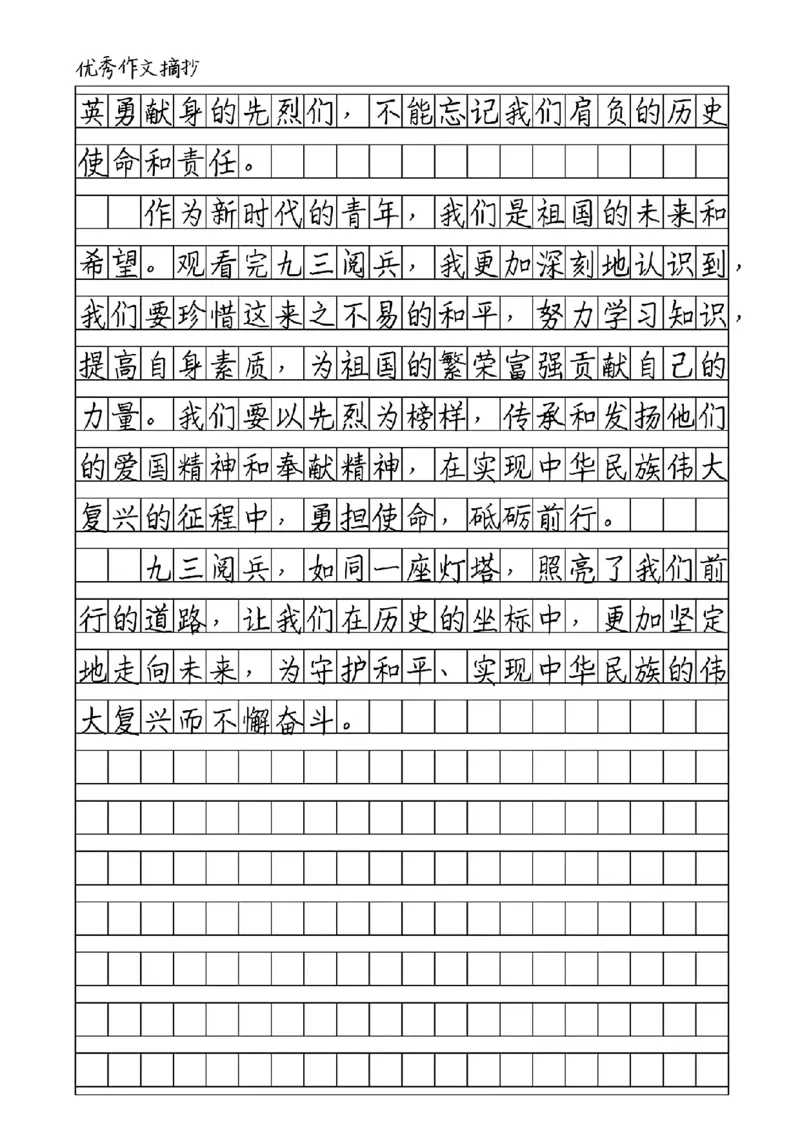 优秀作文摘抄
英勇献身的先烈们，不能忘记我们肩负的历史
使命和责任。
作为新时代的青年，我们是祖国的未来和
希望。观看完九三阅兵，我更加深刻地认识到，
我们要珍惜这来之不易的和平，努力学习知识，
提高自身素质，为祖国的繁荣富强贡献自己的
力量。我们要以先烈为榜样，传承和发扬他们
的爱国精神和奉献精神，在实现中华民族伟大
复兴的征程中，勇担使命，砥砺前行。
九三阅兵，如同一座灯塔，照亮了我们前
行的道路，让我们在历史的坐标中，更加坚定
地走向未来，为守护和平、实现中华民族的伟
大复兴而不懈奋斗。